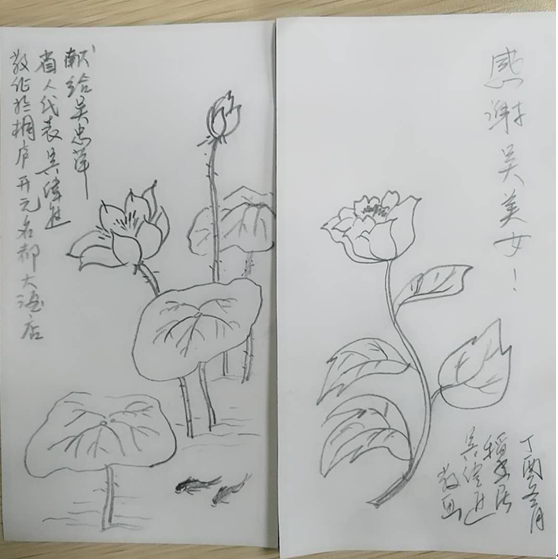 献给吴忠萍
省人代表吴伟进
敬作于桐庐开元名都大酒店
感谢吴美女！
丁酉年 月
稻 居
吴伟进
敬画